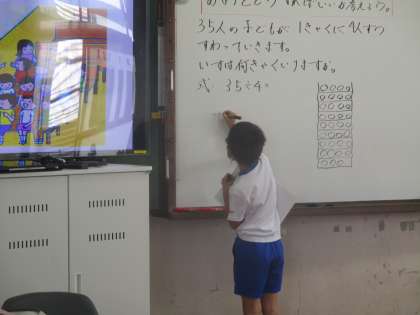 考えよう。
35人の子どもが1きゃくに4人ずつ
すわっていきます。
いすは何きゃくいりますか。
式 35÷4=